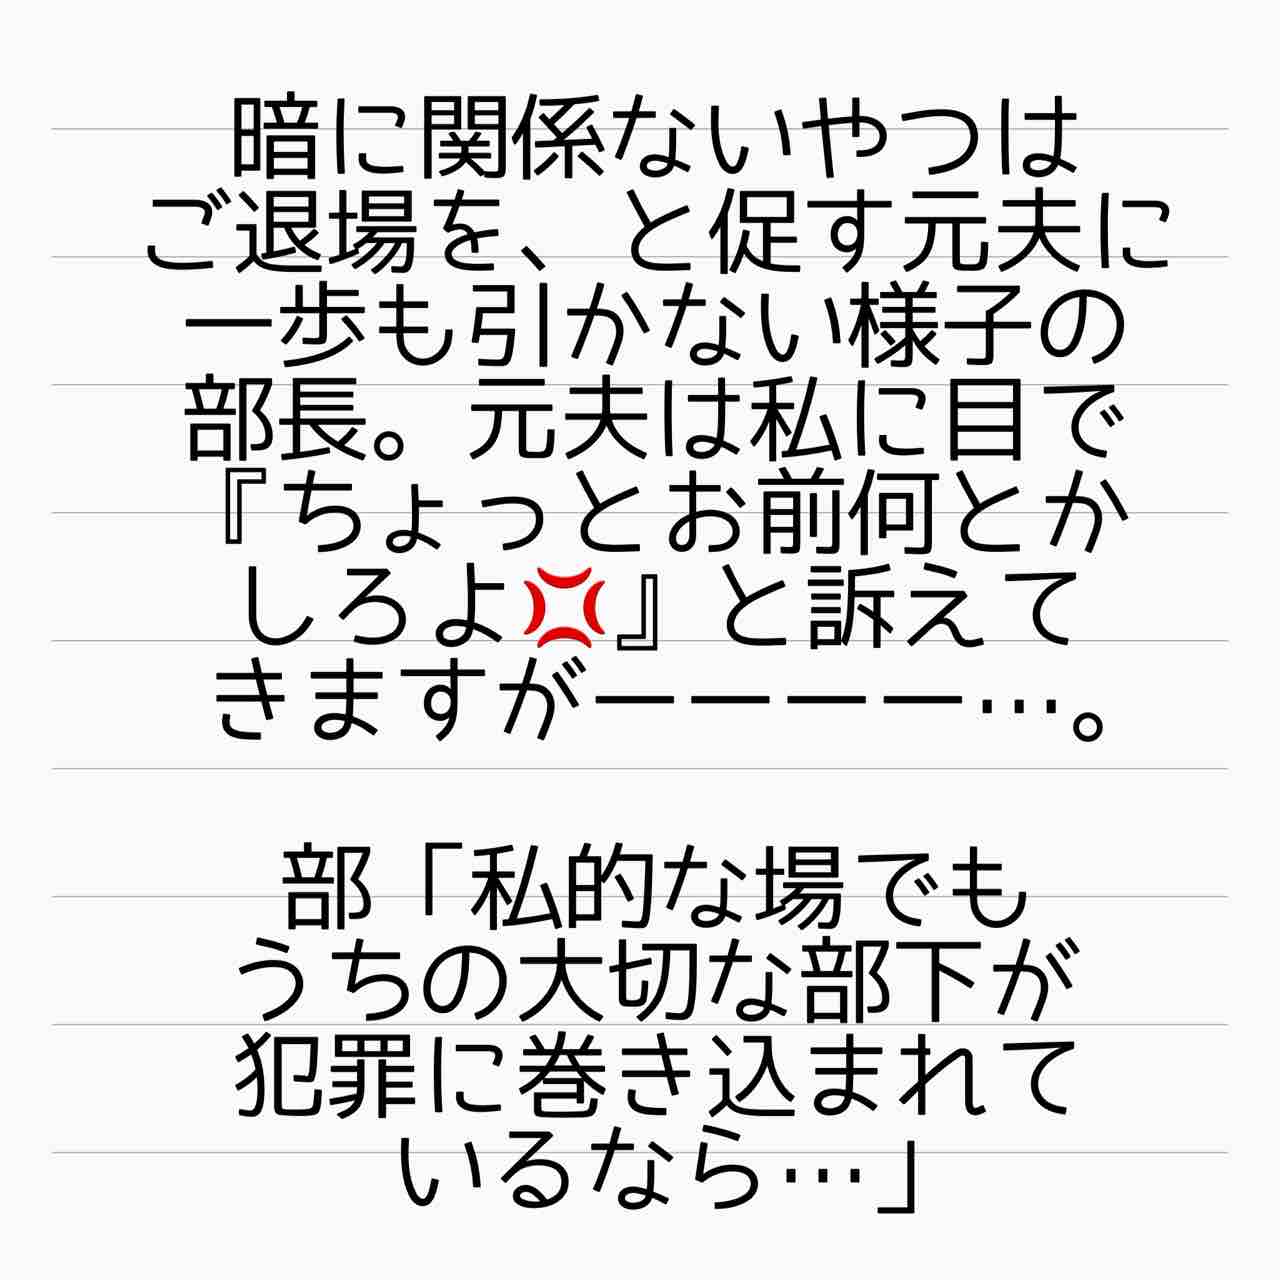 暗に関係ないやつは
ご退場を、と促す元夫に
一歩も引かない様子の
部長。元夫は私に目で
『ちょっとお前何とか
しろよ💢』と訴えて
きますがーーーー…。
部「私的な場でも
うちの大切な部下が
犯罪に巻き込まれて
いるなら…」